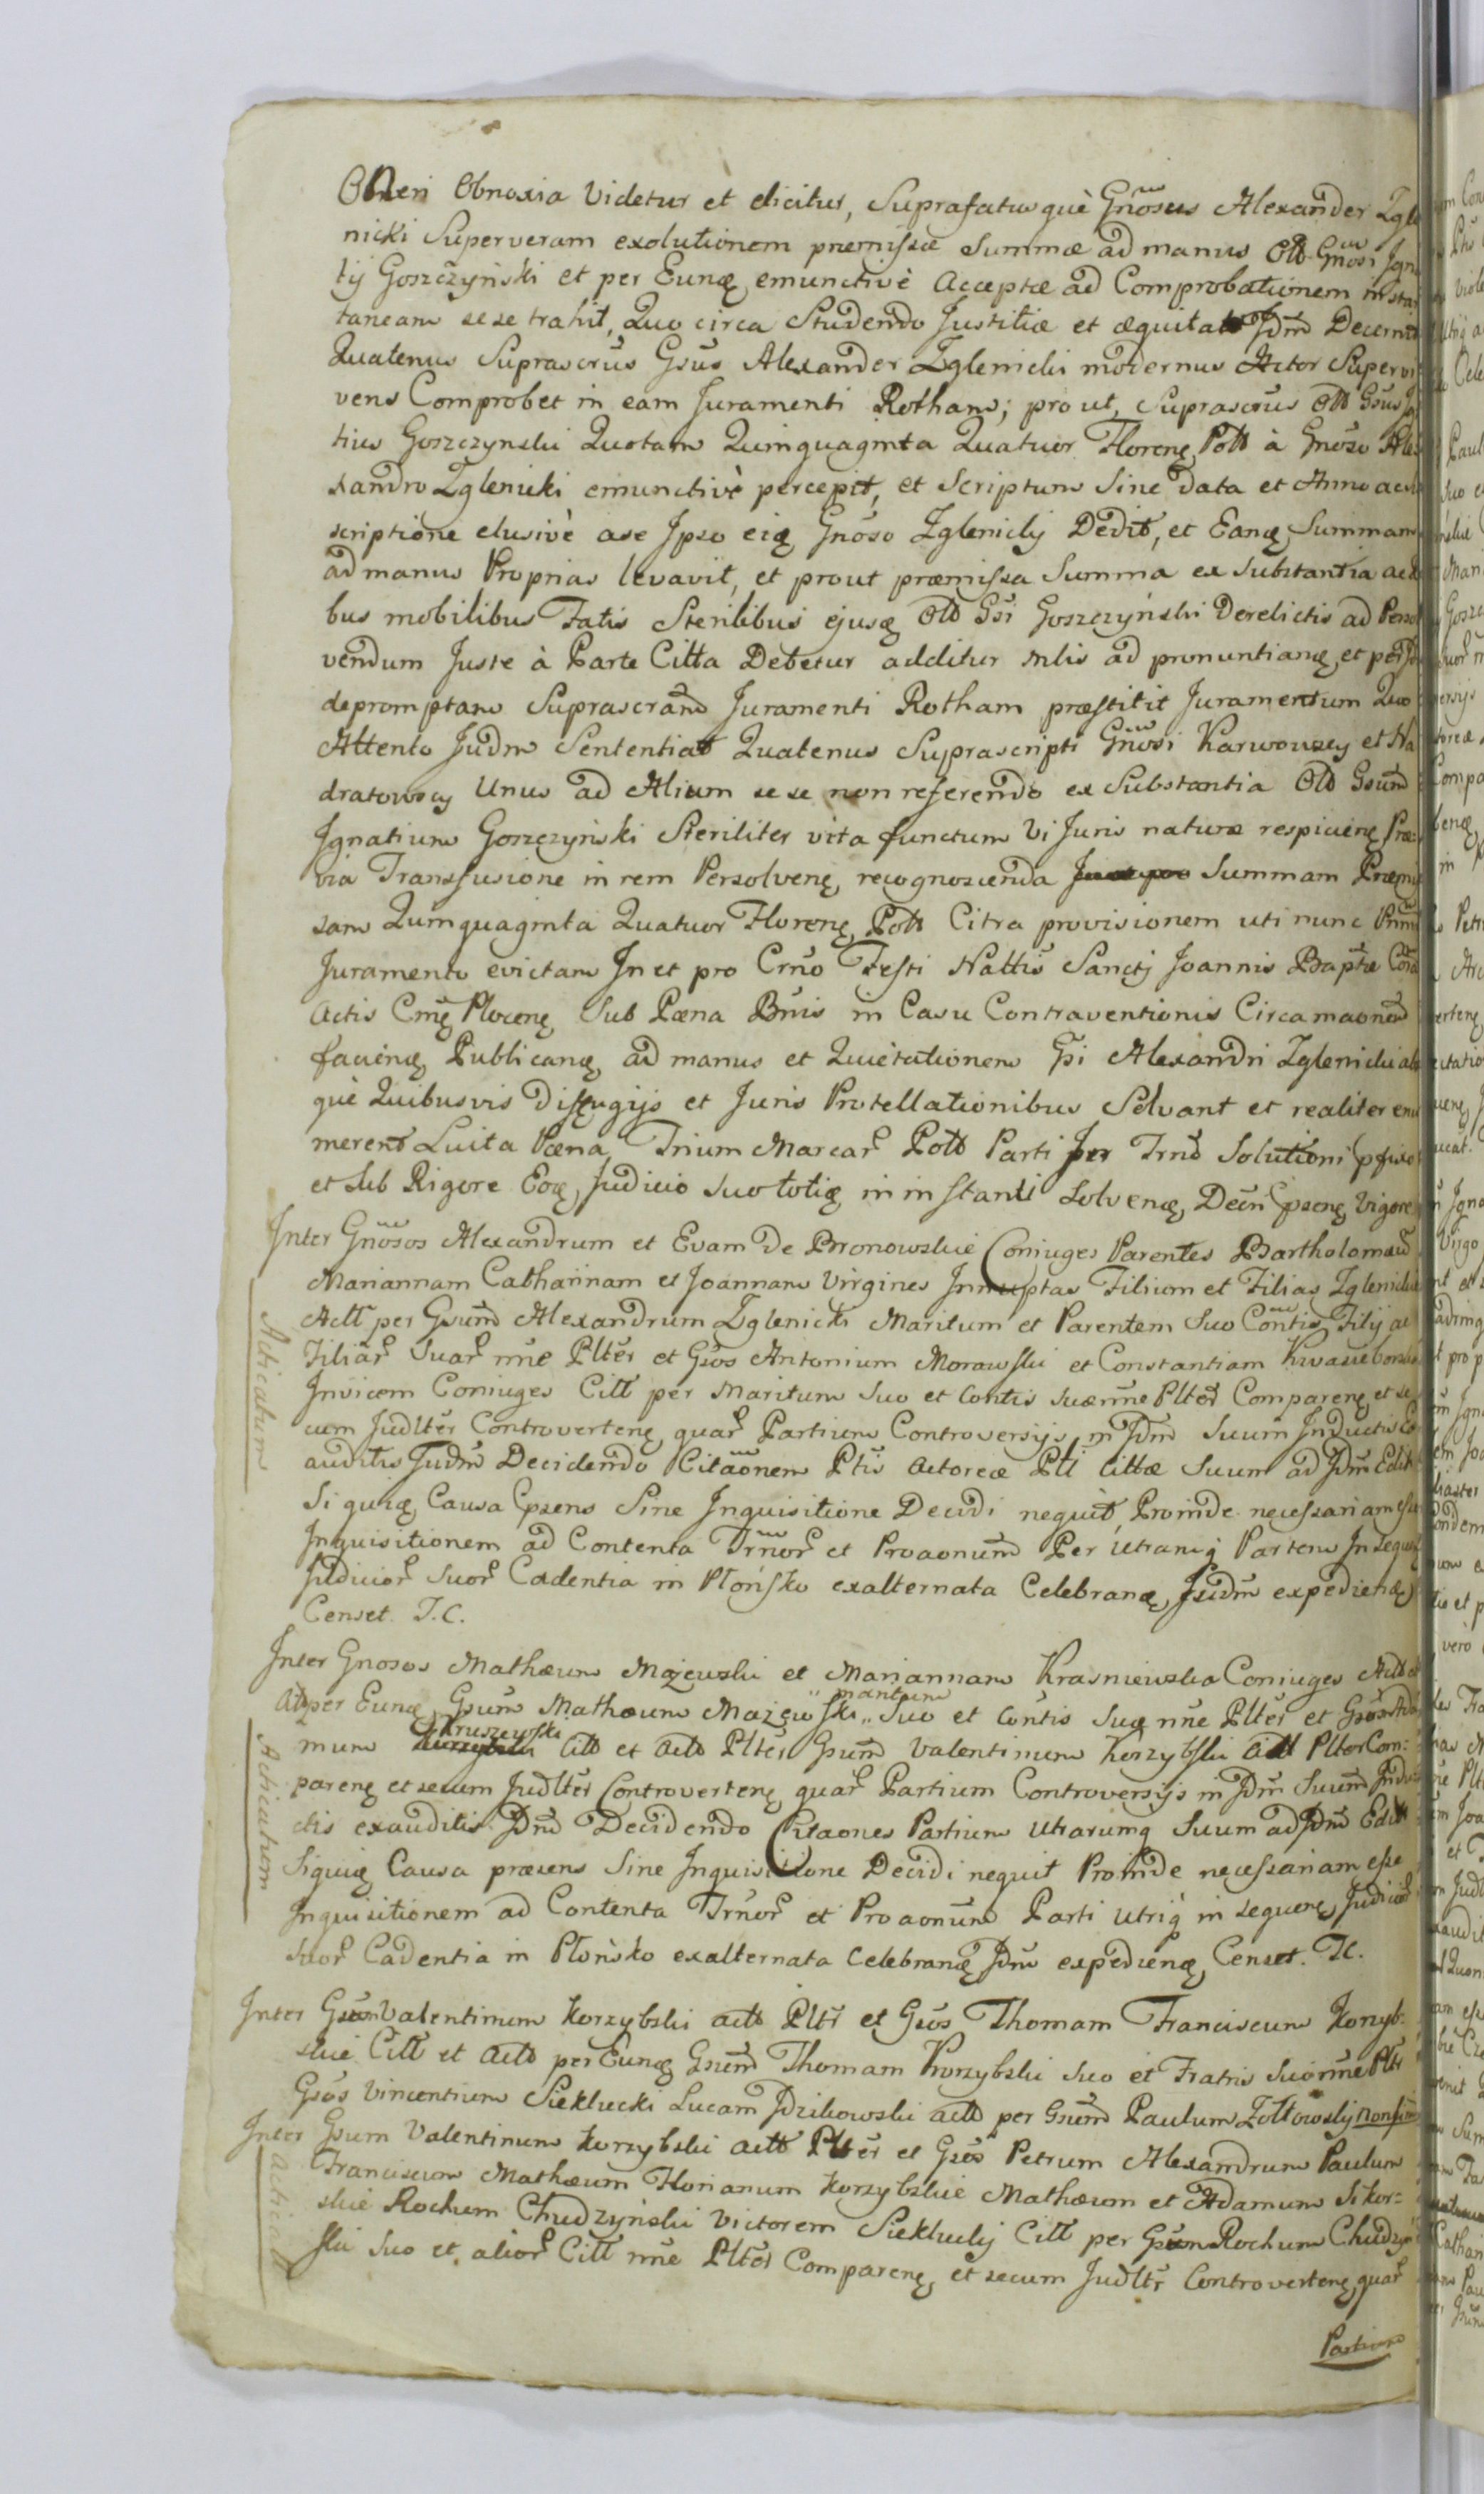 Oneri Obnoxia Videtur et dicitur, Suprafatusquè Gnosus Alexander Zgle
nicki Superveram exolutionem præmissæ Summæ ad manus Olb Gnosi Igna
tij Goszczyński et per Eunq emunctivè Acceptæ ad Comprobationem instan
taneam sese trahit, Quo circa Studendo Justitiæ et æquitati Jdm Decernit
Quatenus Suprascrus Gsus Alexander Zglenicki modernus Actor Supervi
vens Comprobet in eam Juramenti Rotham; prout, Suprascrus Olb Gsus Ig
tius Goszczynski Quotam Quinquaginta Quatuor Florenq Poll à Gnoso Ale
xandro Zglenicki emunctivè percepit, et Scriptum Sine Data et Anno
scriptione elusivè a se Ipso eiq Gnoso Zglenicky Dedit, et Eanq Summam
ad manus Proprias levavit, et prout præmissa Summa ex Substantia
bus mobilibus Fatis Sterilibus ejusq Olb Gsi Goszczyński Derelictis ad Persol
vendum Juste à Parte Citta Debetur additur ad pronuntianq et per
depromptam Suprascram Juramenti Rotham præstitit Juramentum Quo
Attento Judm Sententiat Quatenus Suprascripti Gnosi Karwowscy et Na
dratowscy Unus ad Alium se se non referendo ex Substantia Olb Gsum
Ignatium Goszczyński Steriliter vita functum Vi Juris naturæ respicienq Præ=
via Transfusione in rem Persolvenq, recognoscenda Summam Præmis
sam Quinquaginta Quatuor Florenq Poll Citra provisionem uti nunc
Juramento evictam In et pro Crno Festi Nattis Sancti Joannis Baptæ Cora
Actis Cmq Plocenq Sub Pæna Bnis in Casu Contraventionis Circa maonem
facienq Publicanq ad manus et Quietationem Gsi Alexandri Zglenicki abs
què Quibusvis Diffugijs et Juris Protellationibus Solvant et realiter enu
merent Luita Pæna Trium Marcar Poll Parti per Trnd Solutioni
et sub Rigore Eoq Judicio suo totiq in instanti Solvenq, Decri Cpsenq Vigore
Inter Gnosos Alexandrum et Evam De Bronowskie Coniuges Parentes Bartholomæum
Mariannam Catharinam et Joannam Virgines Innuptas Filium et Filias Zglenickie
Actt per Gsum Alexandrum Zglenicki Maritum et Parentem Suo Contis Filij ac
Filiar Suar nne Plter et Gsos Antonium Morawski et Constantiam
Invicem Coniuges Citt per Maritum Suo et Contis Suæ nne Plter Comparenq et se
cum Judlter Controvertenq quar Partium Controversijs in Jdm Suum Inductis
auditis Judm Decidendo Citaonem Ptis Actoreæ Pti Cittæ Suum ad Jdm Edit
Si quiq Causa Cpsens Sine Inquisitione Decidi nequit, Proinde necessariam esse
Inquisitionem ad Contenta Trnor et Proaonum Per Utramq Partem In sequen
Judicior Suor Cadentia in Płońsko exalternata Celebranq Judm expedienq
Censet. T.C.
Articulum
Inter Gnosos Mathæum Mażewski et Mariannam Krasniewska Coniuges Actt et
per Eunq Gsum Mathæum Mażewski „maritum„ Suo et Contis Suæ nne Plter et Gsos Ada
mum Kruszewski Citt et Actt Plter Gsum Valentinum Korzybski Citt Plter Com=
parenq et secum Judlter Controvertenq quar Partium Controversijs in Jdm Suum Indu
ctis exauditis Jdm Decidendo Citaones Partium Utrarumq Suum ad Jdm Edit
Siquiq Causa præsens Sine Inquisitione Decidi nequit Proinde necessariam esse
Inquisitionem ad Contenta Trnor et Proaonum Parti Utriq in sequenq Judicior
Suor Cadentia in Płońsko exalternata Celebranq Jdm expedienq Censet. TC.
Articulum
Inter Gsum Valentinum Korzybski actt Pltr et Gsos Thomam Franciscum Korzyb=
skie Citt et Actt per Eunq Gsum Thomam Korzybski Suo et Fratris Sui nne Pltr
Gsos Vincentium Sieklucki Lucam Jdzikowski actt per Gsum Paulum Zołtowsky
Inter Gsum Valentinum Korzybski actt Plter et Gsos Petrum Alexandrum Paulum
Franciscum Mathæum Florianum Korzybskie Mathæum et Adamum Sikor=
skie Rochum Chudzyński Victorem Sieklucky Citt per Gsum Rochum Chudzyń
ski Suo et alior Citt nne Plter Comparenq et secum Judltr Controvertenq quar
Partium